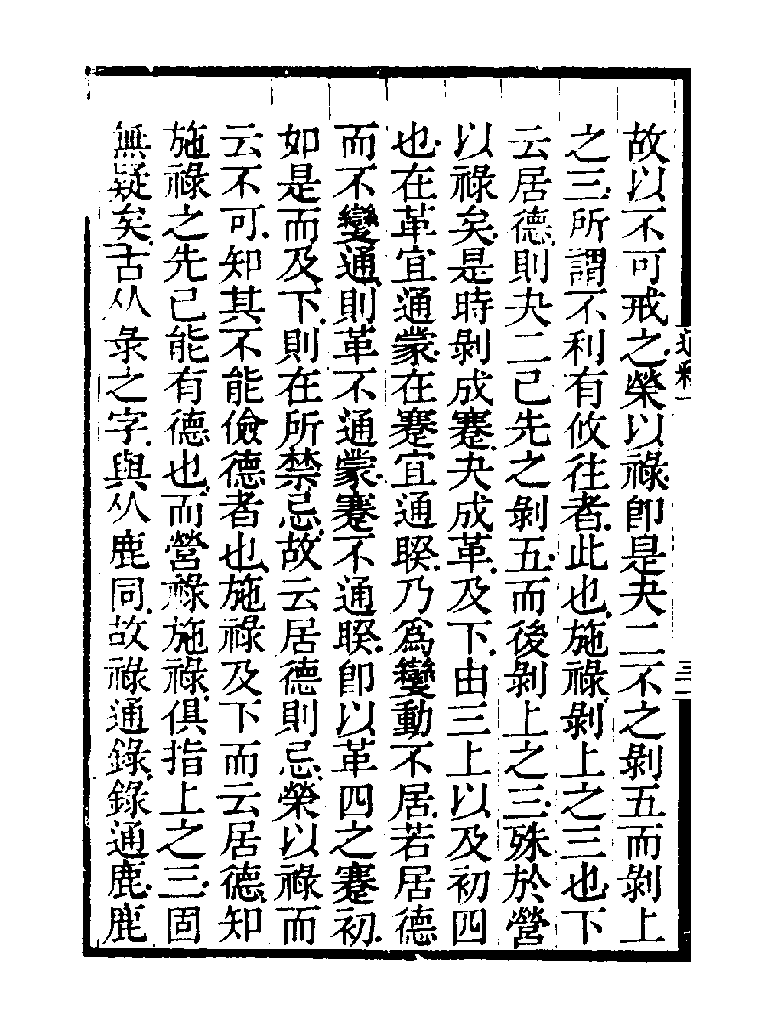 故以不可戒之榮以祿卽是夬二不之剝五而剝上
之三所謂不利有攸往者此也施祿剝上之三也下
云居德則夬二已先之剝五而後剝上之三殊於營
以祿矣是時剝成蹇夬成革及下由三上以及初四
也在革宜通蒙在蹇宜通睽乃爲變動不居若居德
而不變通則革不通蒙蹇不通睽卽以革四之蹇初
如是而及下則在所禁忌故云居德則忌榮以祿而
云不可知其不能儉德者也施祿及下而云居德知
施祿之先已能有德也而營祿施祿俱指上之三固
無疑矣古从彔之字與从鹿同故祿通錄錄通鹿鹿
通釋一
三一